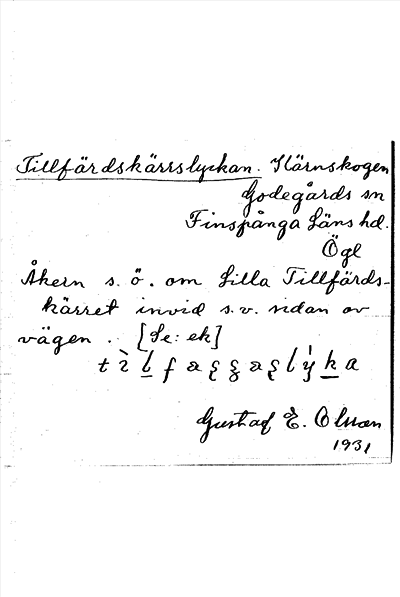 Tillfärdskärrslyckan. Kärnskogen
Godegårds sn
Finspånga Läns hd.
Ögl
Åkern s. ö. om Lilla Tillfärds-
kärret invid s.v. sidan av
vägen. [Se: ek]
Gustaf E. Olsson
1931